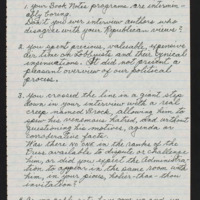 1. your Book Notes programs are intermin-
ably boring.
Don't you ever interview authors who
disagree with your Republican views?
2. you spent precious, valuable, expensive
air time on and their typical
. It did not present a
pleasant overview of our political
process.
3. You crossed the line in a giant step
down in your interview with a real
creep named Brock, allowing him to
spew his venomous hatred, and without
questioning his motives, agenda or
considerable facts.
Was there no one in the ranks of the
Press available to dispute or challenge
him, or did you expect the Administra-
tion to appear in the same room with
him, in your place, rather than their
invitation?